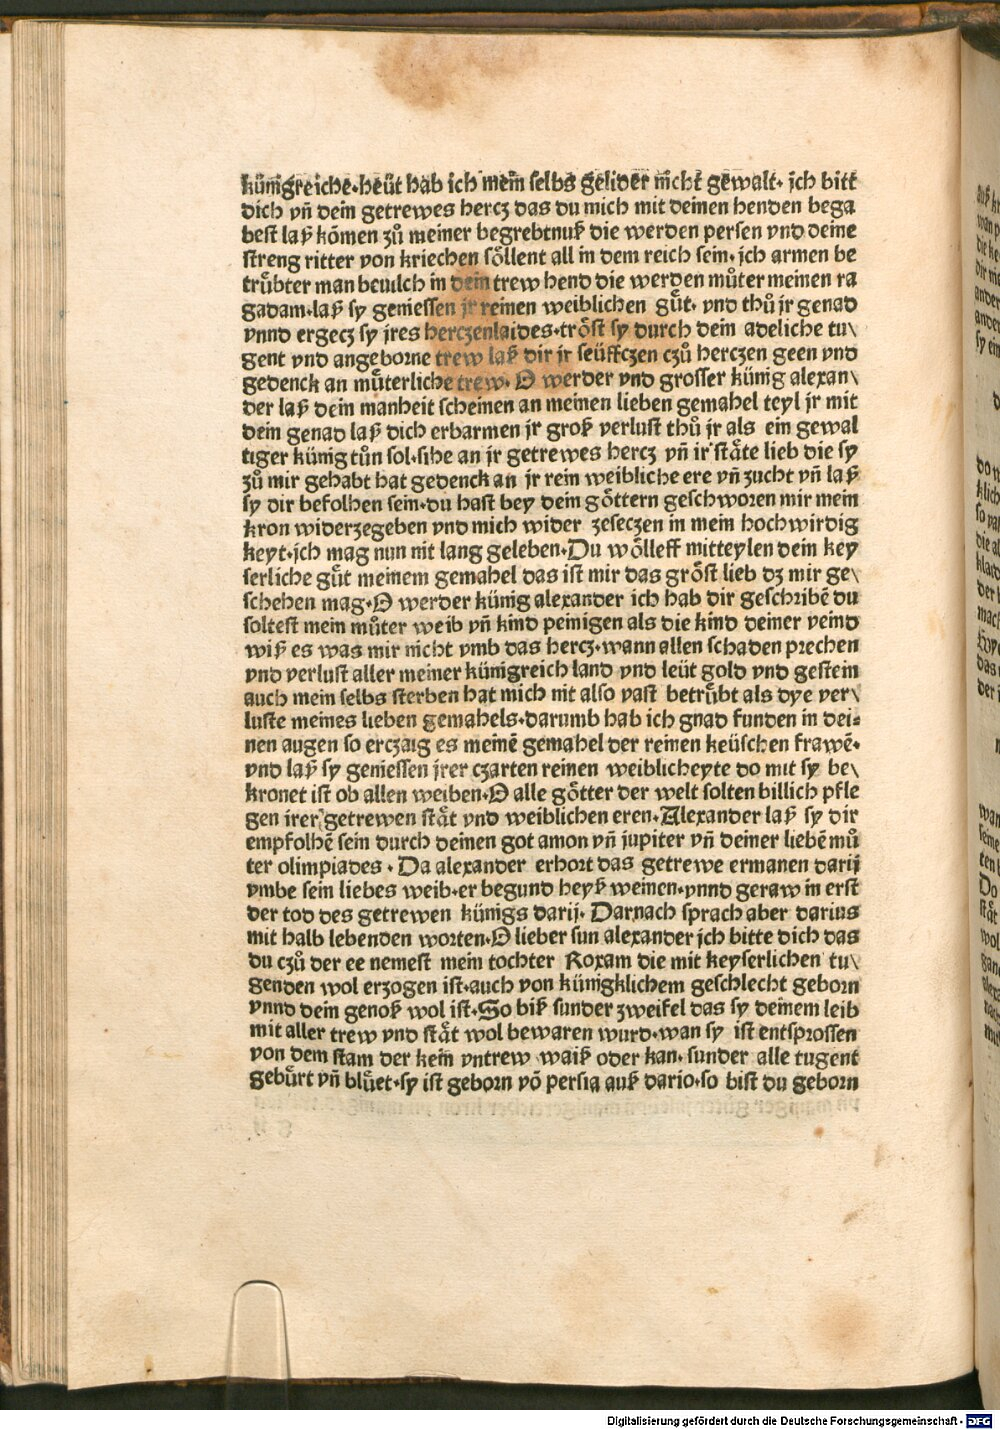 künigreiche·heüt hab ich mein selbs gelider nicht gewalt· ich bitt
dich vñ dein getrewes hercz das du mich mit deinen henden bega
best laß kõmen zů meiner begrebtnuß die werden persen vnd deine
streng ritter von kriechen söllent all in dem reich sein·ich armen be
trübter man beuilch in dein trew hend die werden můter meinen ra
gadam·laß sy geniessen jr reinen weiblichen güt· vnd thů jr genad
vnnd ergecz sy jres herczenlaides·tröst sy durch dein adeliche tu\
gent vnd angeborne trew laß dir jr seüffczen czů herczen geen vnd
gedenck an müterliche trew· O werder vnd grosser künig alexan\
der laß dein manheit scheinen an meinen lieben gemahel teyl jr mit
dein genad laß dich erbarmen jr groß verlust thů jr als ein gewal
tiger künig tůn sol·sihe an jr getrewes hercz vñ ir stäte lieb die sy
zů mir gehabt hat gedenck an jr rein weibliche ere vñ zucht vñ laß
sy dir befolhen sein·du hast bey dein göttern geschworen mir mein
kron widerzegeben vnd mich wider zeseczen in mein hochwirdig
keyt·ich mag nun nit lang geleben·Du wölleff mitteylen dein key
serliche güt meinem gemahel das ist mir das gröst lieb dz mir ge\
schehen mag·O werder künig alexander ich hab dir geschribẽ du
soltest mein můter weib vñ kind peinigen als die kind deiner veind
wiß es was mir nicht vmb das hercz·wann allen schaden prechen
vnd verlust aller meiner künigreich land vnd leüt gold vnd gestein
auch mein selbs sterben hat mich nit also vast betrübt als dye ver\
luste meines lieben gemahels·darumb hab ich gnad funden in dei⸗
nen augen so erczaig es meinẽ gemahel der reinen keüschen frawẽ·
vnd laß sy geniessen jrer czarten reinen weiblicheyte do mit sy be\
kronet ist ob allen weiben·O alle götter der welt solten billich pfle
gen irer getrewen stät vnd weiblichen eren·Alexander laß sy dir
empfolhẽ sein durch deinen got amon vñ jupiter vñ deiner liebẽ mů
ter olimpiades · Da alexander erhort das getrewe ermanen darij
vmbe sein liebes weib·er begund heyß weinen·vnnd geraw in erst
der tod des getrewen künigs darij· Darnach sprach aber darius
mit halb lebenden worten·O lieber sun alexander ich bitte dich das
du czů der ee nemest mein tochter Roxam die mit keyserlichen tu\
genden wol erzogen ist·auch von künigklichem geschlecht geborn
vnnd dein genoß wol ist·So biß sunder zweifel das sy deinem leib
mit aller trew vnd stät wol bewaren wurd·wan sy ist entsprossen
von dem stam der kein vntrew waiß oder kan· sunder alle tugent
gebürt vñ blüet·sy ist geborn võ persia auß dario·so bist du geborn
Digitalisierung gefördert durch die Deutsche Forschungsgemeinschaft - DFG